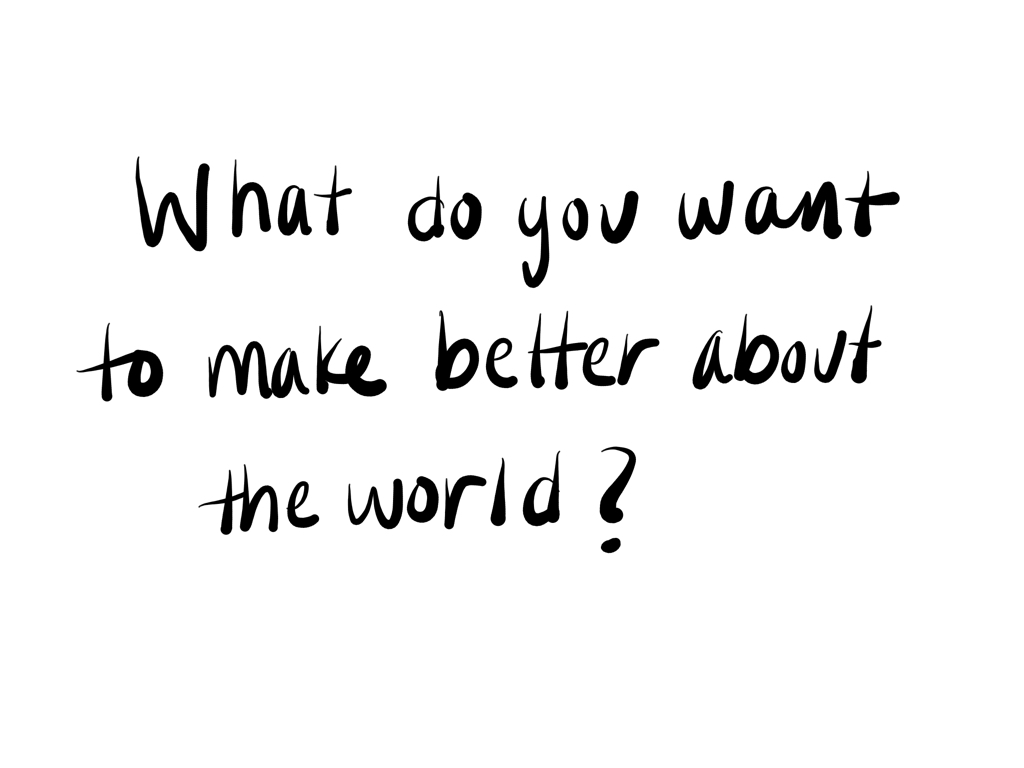 What do you want
to make better about
the world?